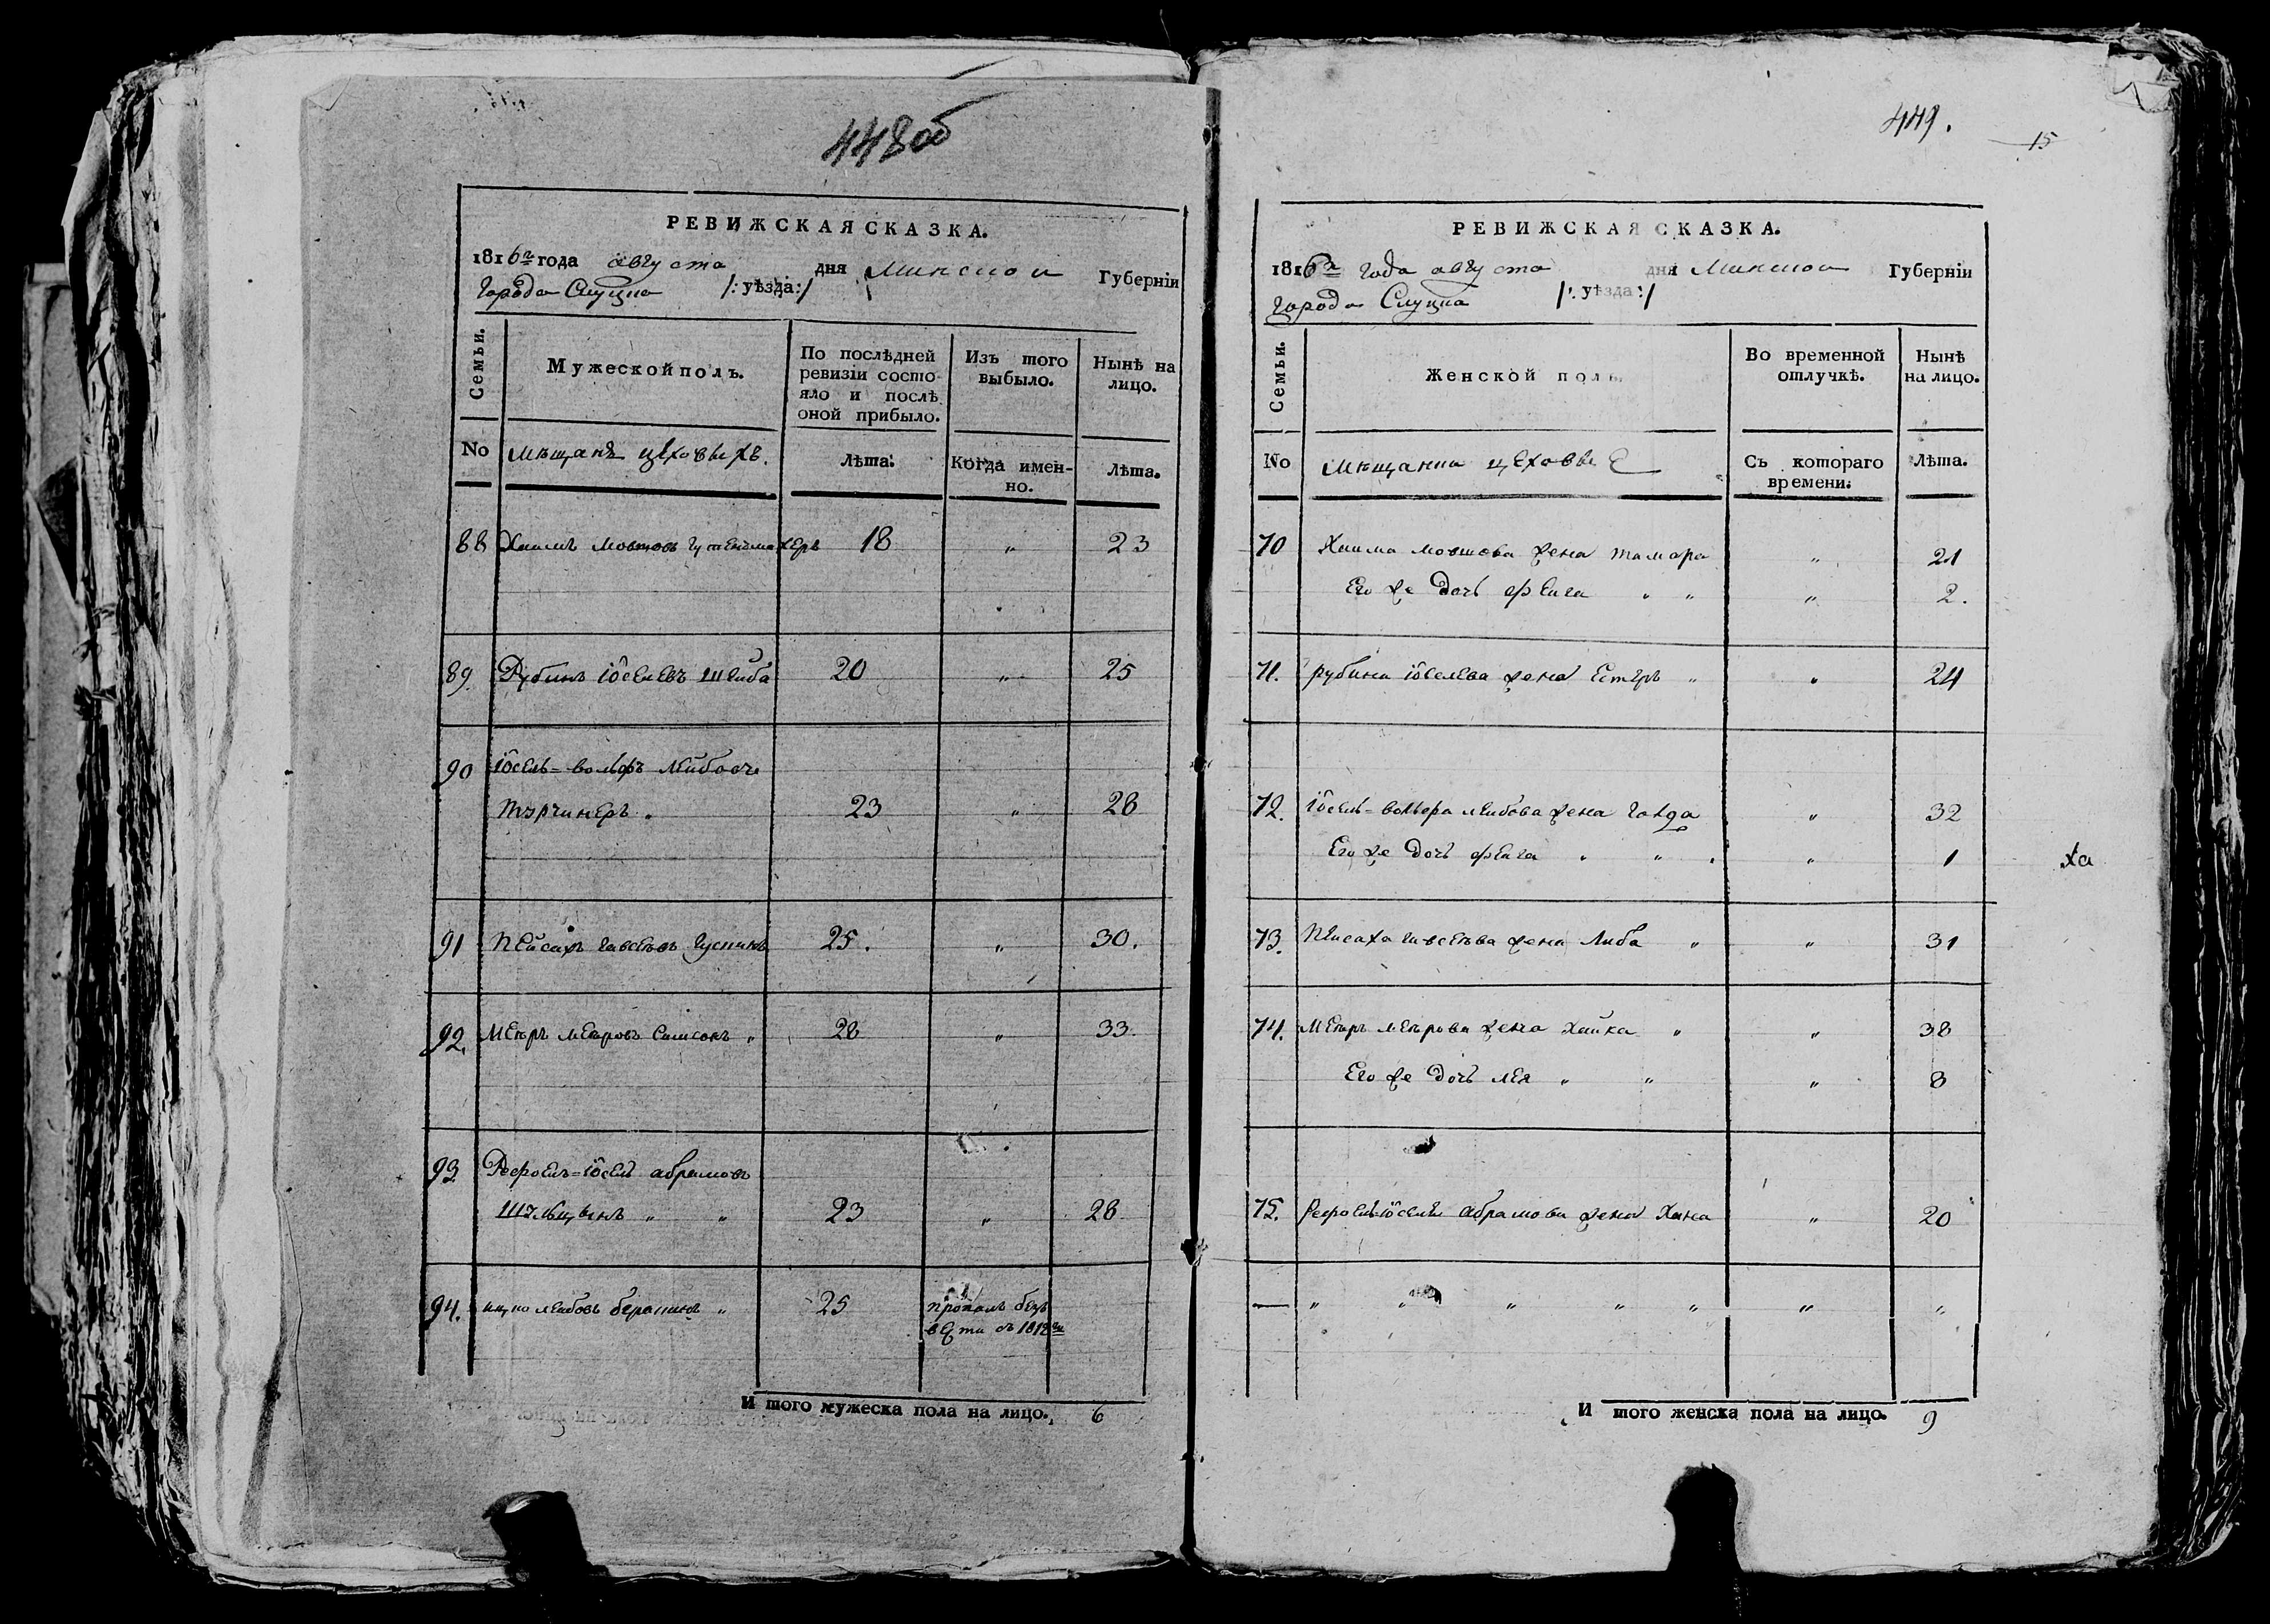 448об
РЕВИЖСКАЯ СКАЗКА.
1816го года августа дня Минской Губернїи
города Слуцка /:уѣзда:/
Семьи.
Мужеской полъ.
По послѣдней ревизїи состояло и послѣ оной прибыло.
Изъ того выбыло.
Нынѣ на лицо.
No
мѣщанъ цеховыхъ.
Лѣта.
Когда именно.
Лѣта.
88 Хаимъ Мовшовъ 18 „ 23
89. Рубинъ Іоселевъ Шейба 20 „ 25
90 Іосель=Вольфъ Лейбовъ
Тэрчинеръ „ 23 „ 28
91 Пейсахъ 25. „ 30.
92. Меиръ Меировъ Самсонъ „ 28 „ 33.
93. Рефоель=Іосель Абрамовъ
„ „ 23 „ 28
94. Ицко Лейбовъ „ 25 пропалъ безъ
вести съ 1812го
И того мужеска пола на лицо. 6
449.
15
РЕВИЖСКАЯ СКАЗКА.
1816го года августа дня Минской Губернїи
города Слуцка /:уѣзда:/
Семьи.
Женской полъ.
Во временной отлучкѣ.
Нынѣ на лицо.
No
мѣщанки цеховые
Съ котораго времени.
Лѣта.
70 Хаима Мовшова жена Тамара „ 21
Его же дочь Фейга „ „ „ 2.
71. Рубина Іоселева жена Естеръ „ „ 24
72. Іосель=Вольфа Лейбова жена Голда „ 32
Его же дочь Фейга „ „ „ „ 1
ха
73. Пейсаха жена Либа „ „ 31
74. Меиръ Меирова жена Хайка „ „ 38
Его же дочь Лея „ „ „ 8
75. Рефоель Іоселя Абрамова жена Хана „ 20
— „ „ „ „ „ „ „
И того женска пола на лицо. 9